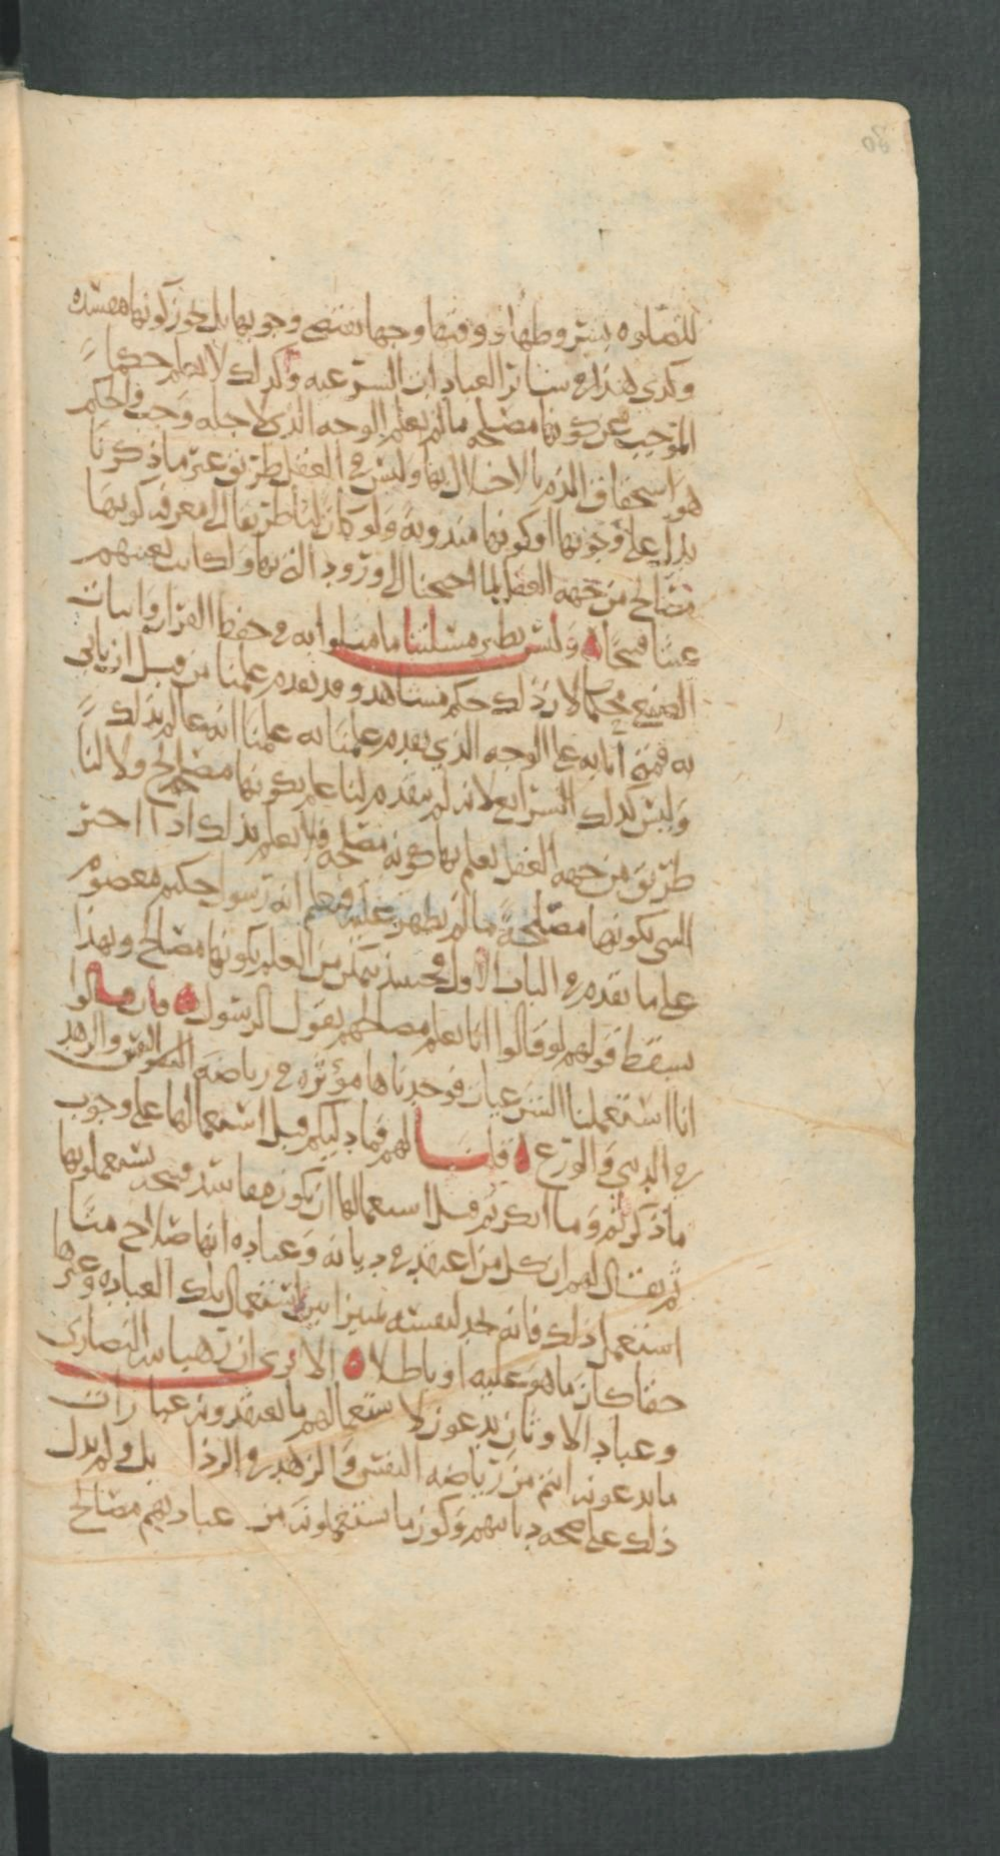 للصلوه بشروطها ووقتها وجها يقتضي وجوبها بل يجوز كونها مفسده
وكذى هذا في سائر العبادات الشرعيه وكذلك لا يعلم حكمها
الموجب عن كونها مصلحه ما لم يعلم الوجه الذي لاجله وجب والحكم
هو استحقاق الذم بالاخلال بها وليس في العقل طريق عير ما ذكرنا
يدل على وجوبها او كونها مندوبه ولو كان لنا طريقا الى معرفه كونها
مصالح من جهه العقل لما احتجنا الى ورود النبي بها ولكانت بعثتهم
عبثا قبيحا ه وليس نظير مسئلتنا ما مثلوا به في حفظ القران واتيان
الصنيع محكما لان ذلك حكم مشاهد وقد تقدم علمنا من قبل ان ياتي
به فمتى اتا به على الوجه الذي تقدم علمنا به علمنا انه عالم بذلك
وليس كذلك الشرايع لانه لم يتقدم لنا علم بكونها مصالح ولا لنا
طريق من جهه العقل يعلم بها كونه مصلحه فلا يعلم بذلك اذا اخبر
النبي بكونها مصلحة ما لم يظهر عليه فيعلم انه رسول حكيم معصوم
على ما تقدم في الباب الاول فحينئذ نتمكن من العلم بكونها مصالح وبهذا
يسقط قولهم لو قالوا انا نعلم مصالحهم بقول الرسول ه فان قالوا
انا استعملنا الشرعيات فوجدناها مؤثره في رياضه النفس والزهد
في الدنيا والورع ه قلنا لهم فما دليلكم قبل استعمالها على وجوب
ما ذكرتم وما انكرتم قبل استعمالها ان يكون مفاسد فيقبح استعمالها
ثم يقال لهم ان كل من اعتقد في ديانه وعباده انها صلاح متا
استعمل ذلك فانه يجد لنفسه تميزا بين استعمال تلك العباده وغيرها
حقا كان ما هو عليه او باطلا ه الا ترى ان رهبان النصارى
وعباد الاوثان يدعون لاستعمالهم ما يعتقدونه عبادات
ما يدعونه انتم من رياضه النفس والزهد في الدنيا بل ولم يدل
ذلك على صحه ديانتهم وكون ما يستعملونه من عبادتهم مصالح